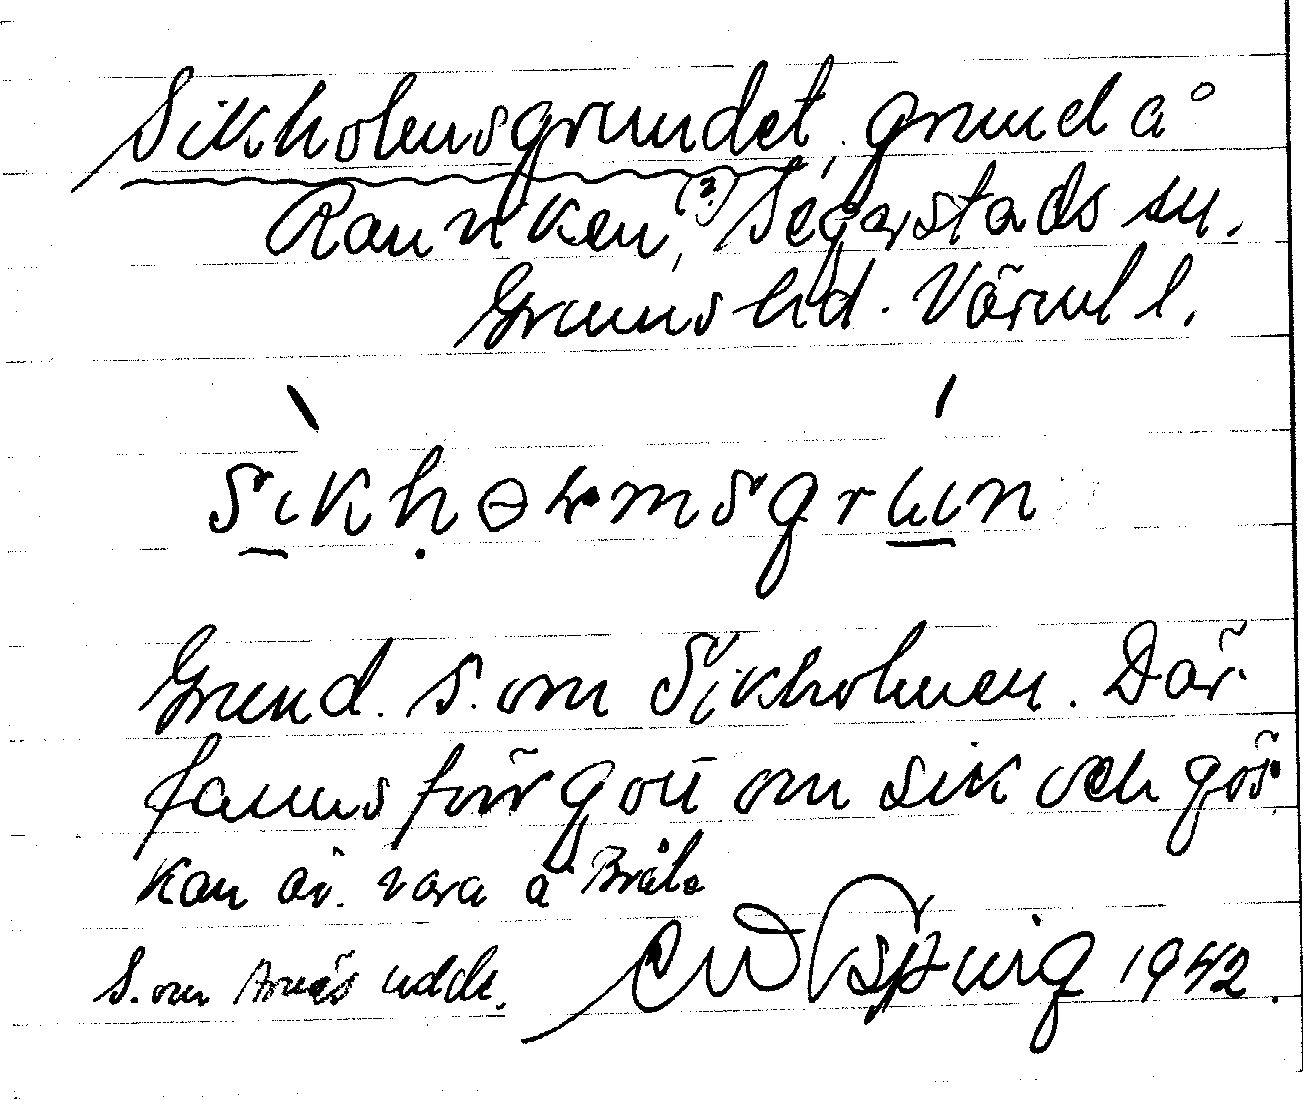 Sikholmsgrundet, grund å
Rannken, (?) Segerstads sn.
Grums hd. Värml l.
Grund. S. om Sikholmen. Där
fanns förr gott om sik och gös
kan äv. vara å
S. om Arnäs udde.
1942.